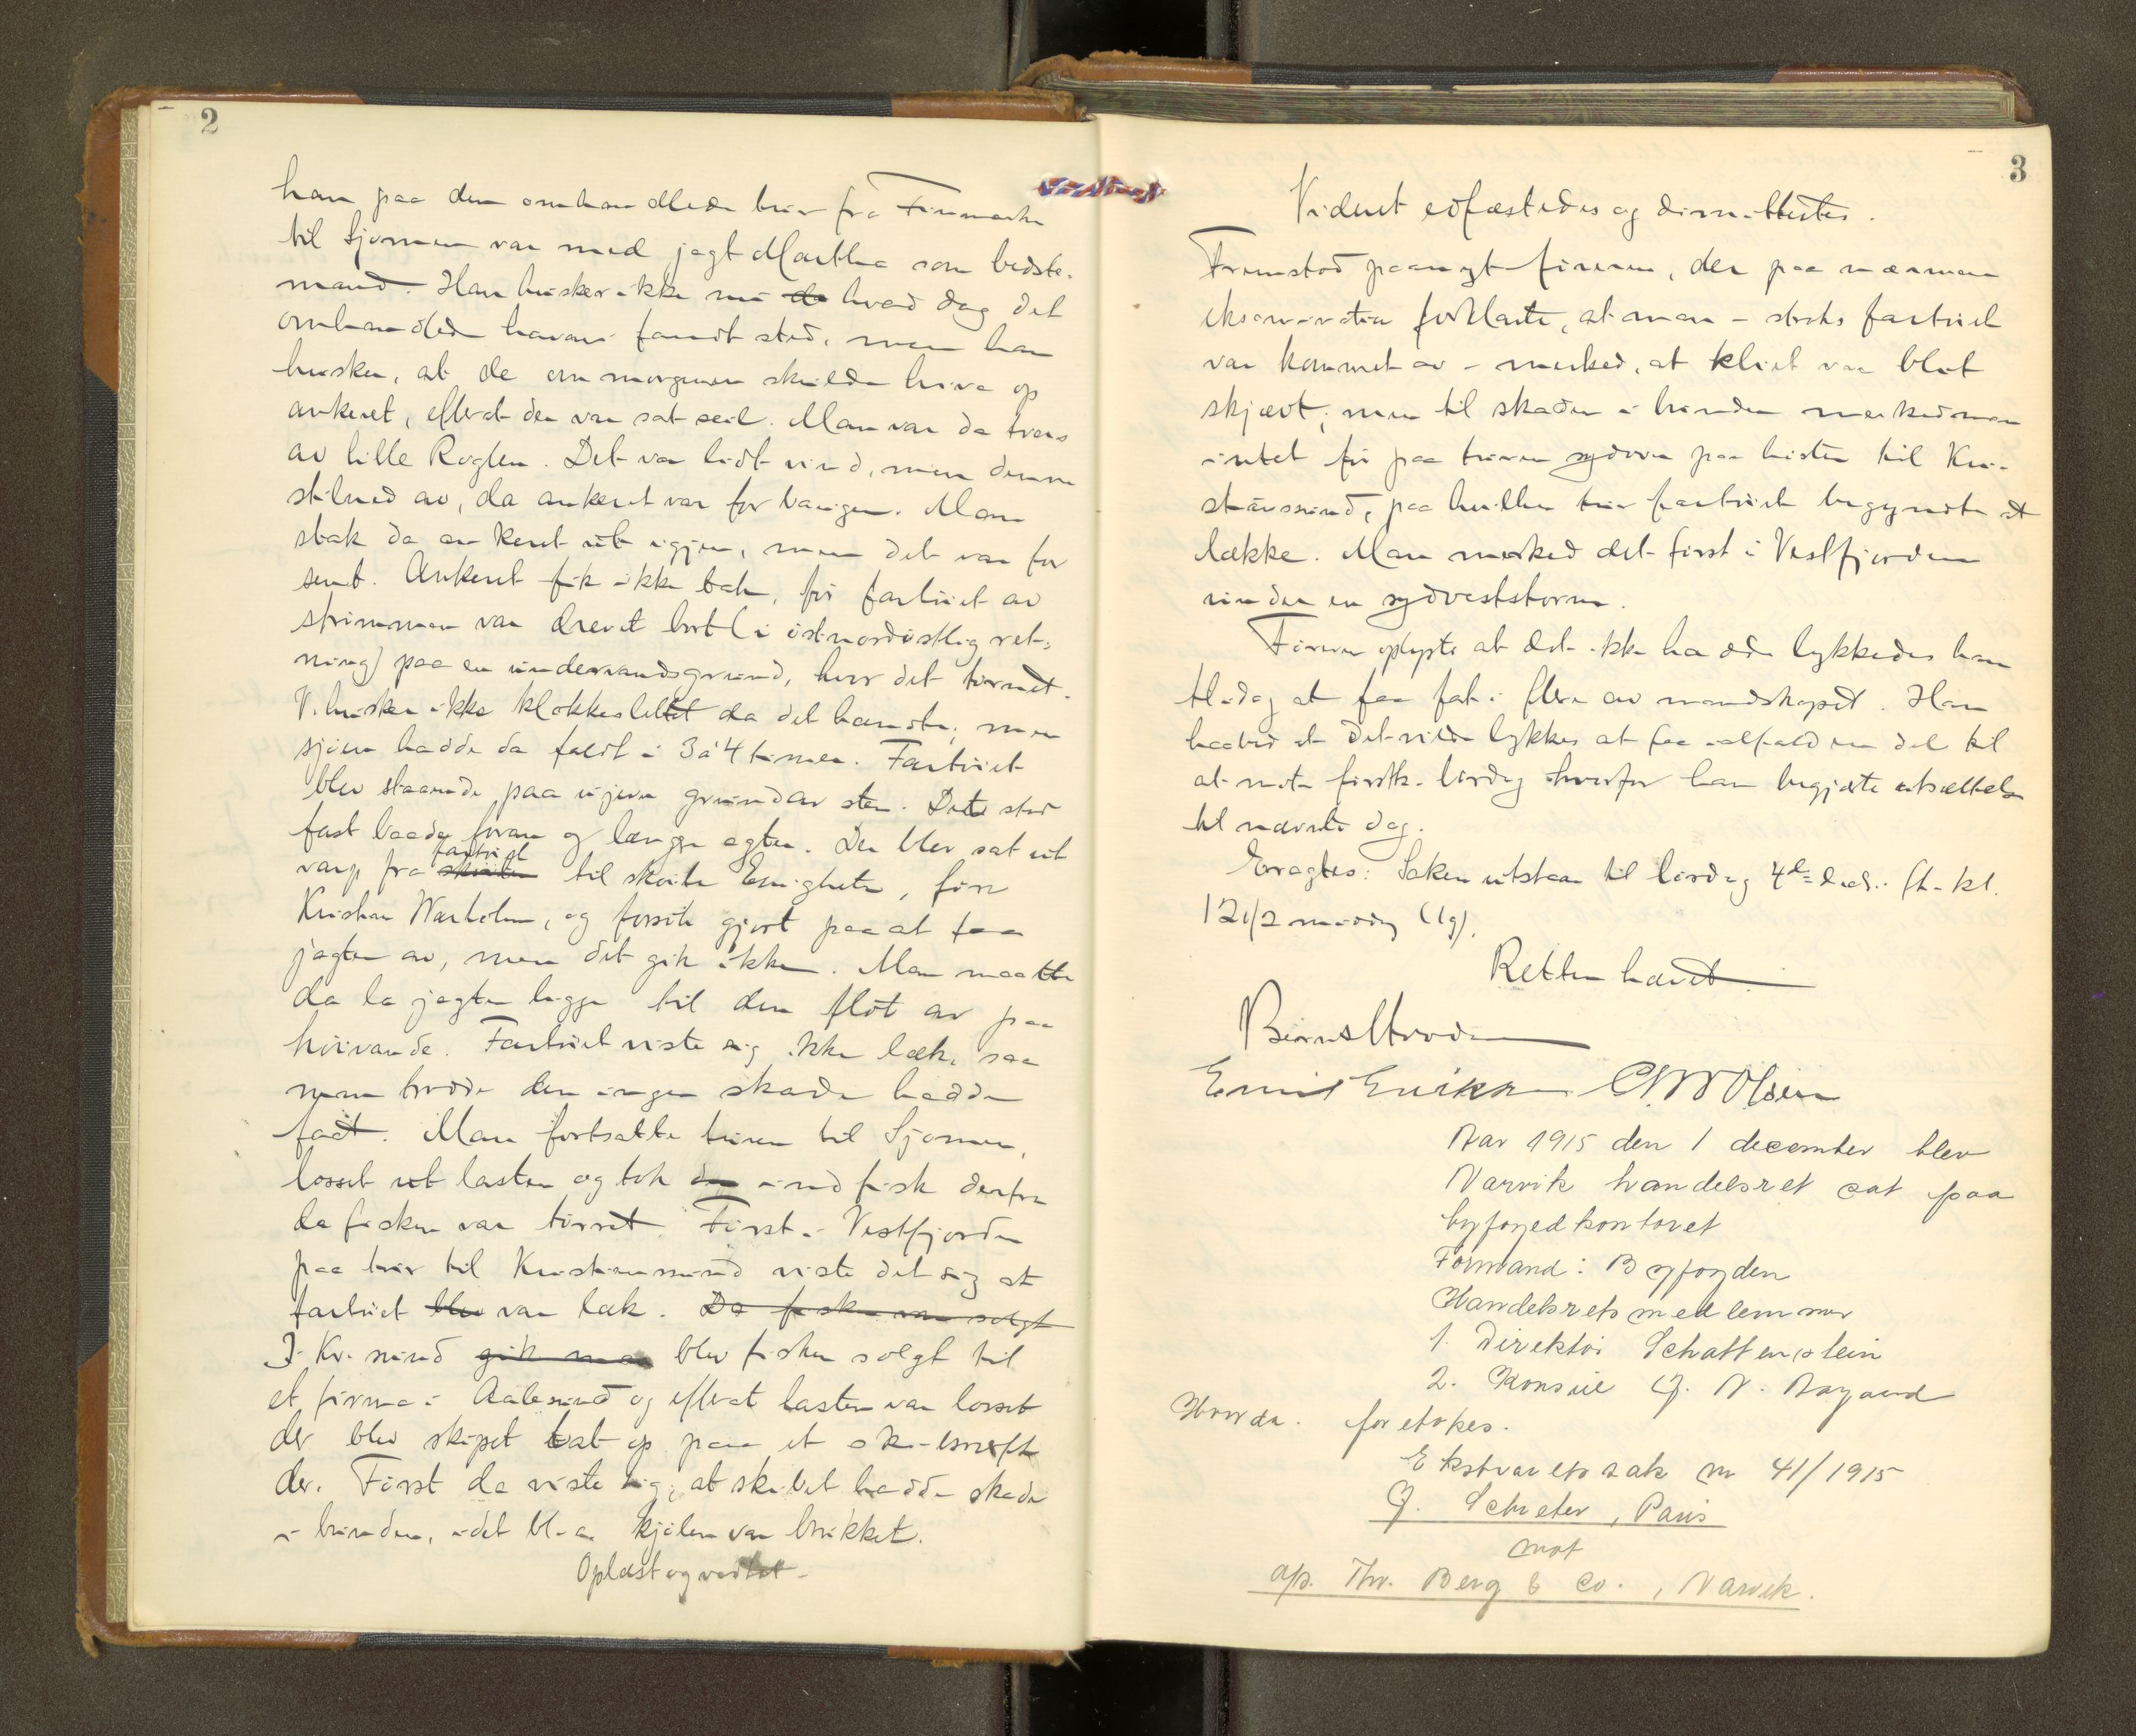 2
han paa den omhandlede tur fra Finmarken
til Sjomen var med jagt Martha som bedste-
mand. Han husker ikke nu de hvad dag det
omhandlede havari fandt sted, men han
husker, at de om morgenen skulde hive op
ankeret, efterat der var sat seil. Man var da tvers
av lille Roglen. Det var lidt vind, men denne
stilned av, da ankeret var for baugen. Man
stak da ankeret ut igjen, men det var for
sent. Ankeret fik ikke tak, før fartøiet av
strømmen var drevet bort (i østnordøstlig ret-
ning) paa en undervandsgrund, hvor det tørnet.
V. husker ikke klokkeslettet da det hændte, men
sjøen hadde da faldt i 3 á 4 timer. Fartøiet
blev staaende paa ujevn grund av sten. Det stod
fast baade foran og længer agter. Der blev sat ut
varp fra skøiten fartøiet til skøite Enigheten, fører
Kristian Warholm, og forsøk gjort paa at faa
jagten av, men det gik ikke. Man maatte
da la jagten ligge til den fløt av paa
høivande. Fartøiet viste sig ikke læk, saa
man trodde den ingen skade hadde
faat. Man fortsatte turen til Sjomen,
losset ut lasten og tok den ind fisk derfra
da fisken var tørret. Først i Vestfjorden
paa tur til Kristianssund viste det sig at
fartøiet blev var læk. Da fisken var solgt
I Kr.sund gik man blev fisken solgt til
et firma i Aalesund og efterat lasten var losset
der blev skipet tat op paa et skibsverft
der. Først da viste sig, at skibet hadde skade
i bunden, idet bl.a. kjølen var brukket.
Oplæst og vedtat-
3
Vidnet edfæstedes og dimittertes.
Fremstod paanyt føreren, der paa nærmere
eksamination forklarte, at man - straks fartøiet
var kommet av - merked, at kliet var blit
skjævt; men til skaden i bunden merked man
intet før paa turen sydover paa høsten til Kri-
stianssund, paa hvilken tur fartøiet begyndte at
lække. Man merked det først i Vestfjorden
under en sydveststorm.
Føreren oplyste at det ikke hadde lykkedes ham
tildag at faa fat i flere av mandskapet. Han
haabed at det vilde lykkes at faa ialfald en del til
at møte førstk. lørdag hvorfor han begjærte utsættelse
til nævnte dag.
Eragtes: Saken utstaar til lørdag 4de ds. kl.
12 1/2 middag (lg).
Retten hævet
Emil Eriksen Olsen
Aar 1915 den 1 december blev
Narvik handelsret sat paa
byfogedkontoret
Formand: Byfogden
Handelsretsmedlemmer
1. Direktør Schattenstein
2. Konsul J. N. Aagaard
Hvorda. foretokes.
Ekstraretssak nr 41/1915
J. Schreter, Paris
mot
ap. Thv. Berg & Co., Narvik.